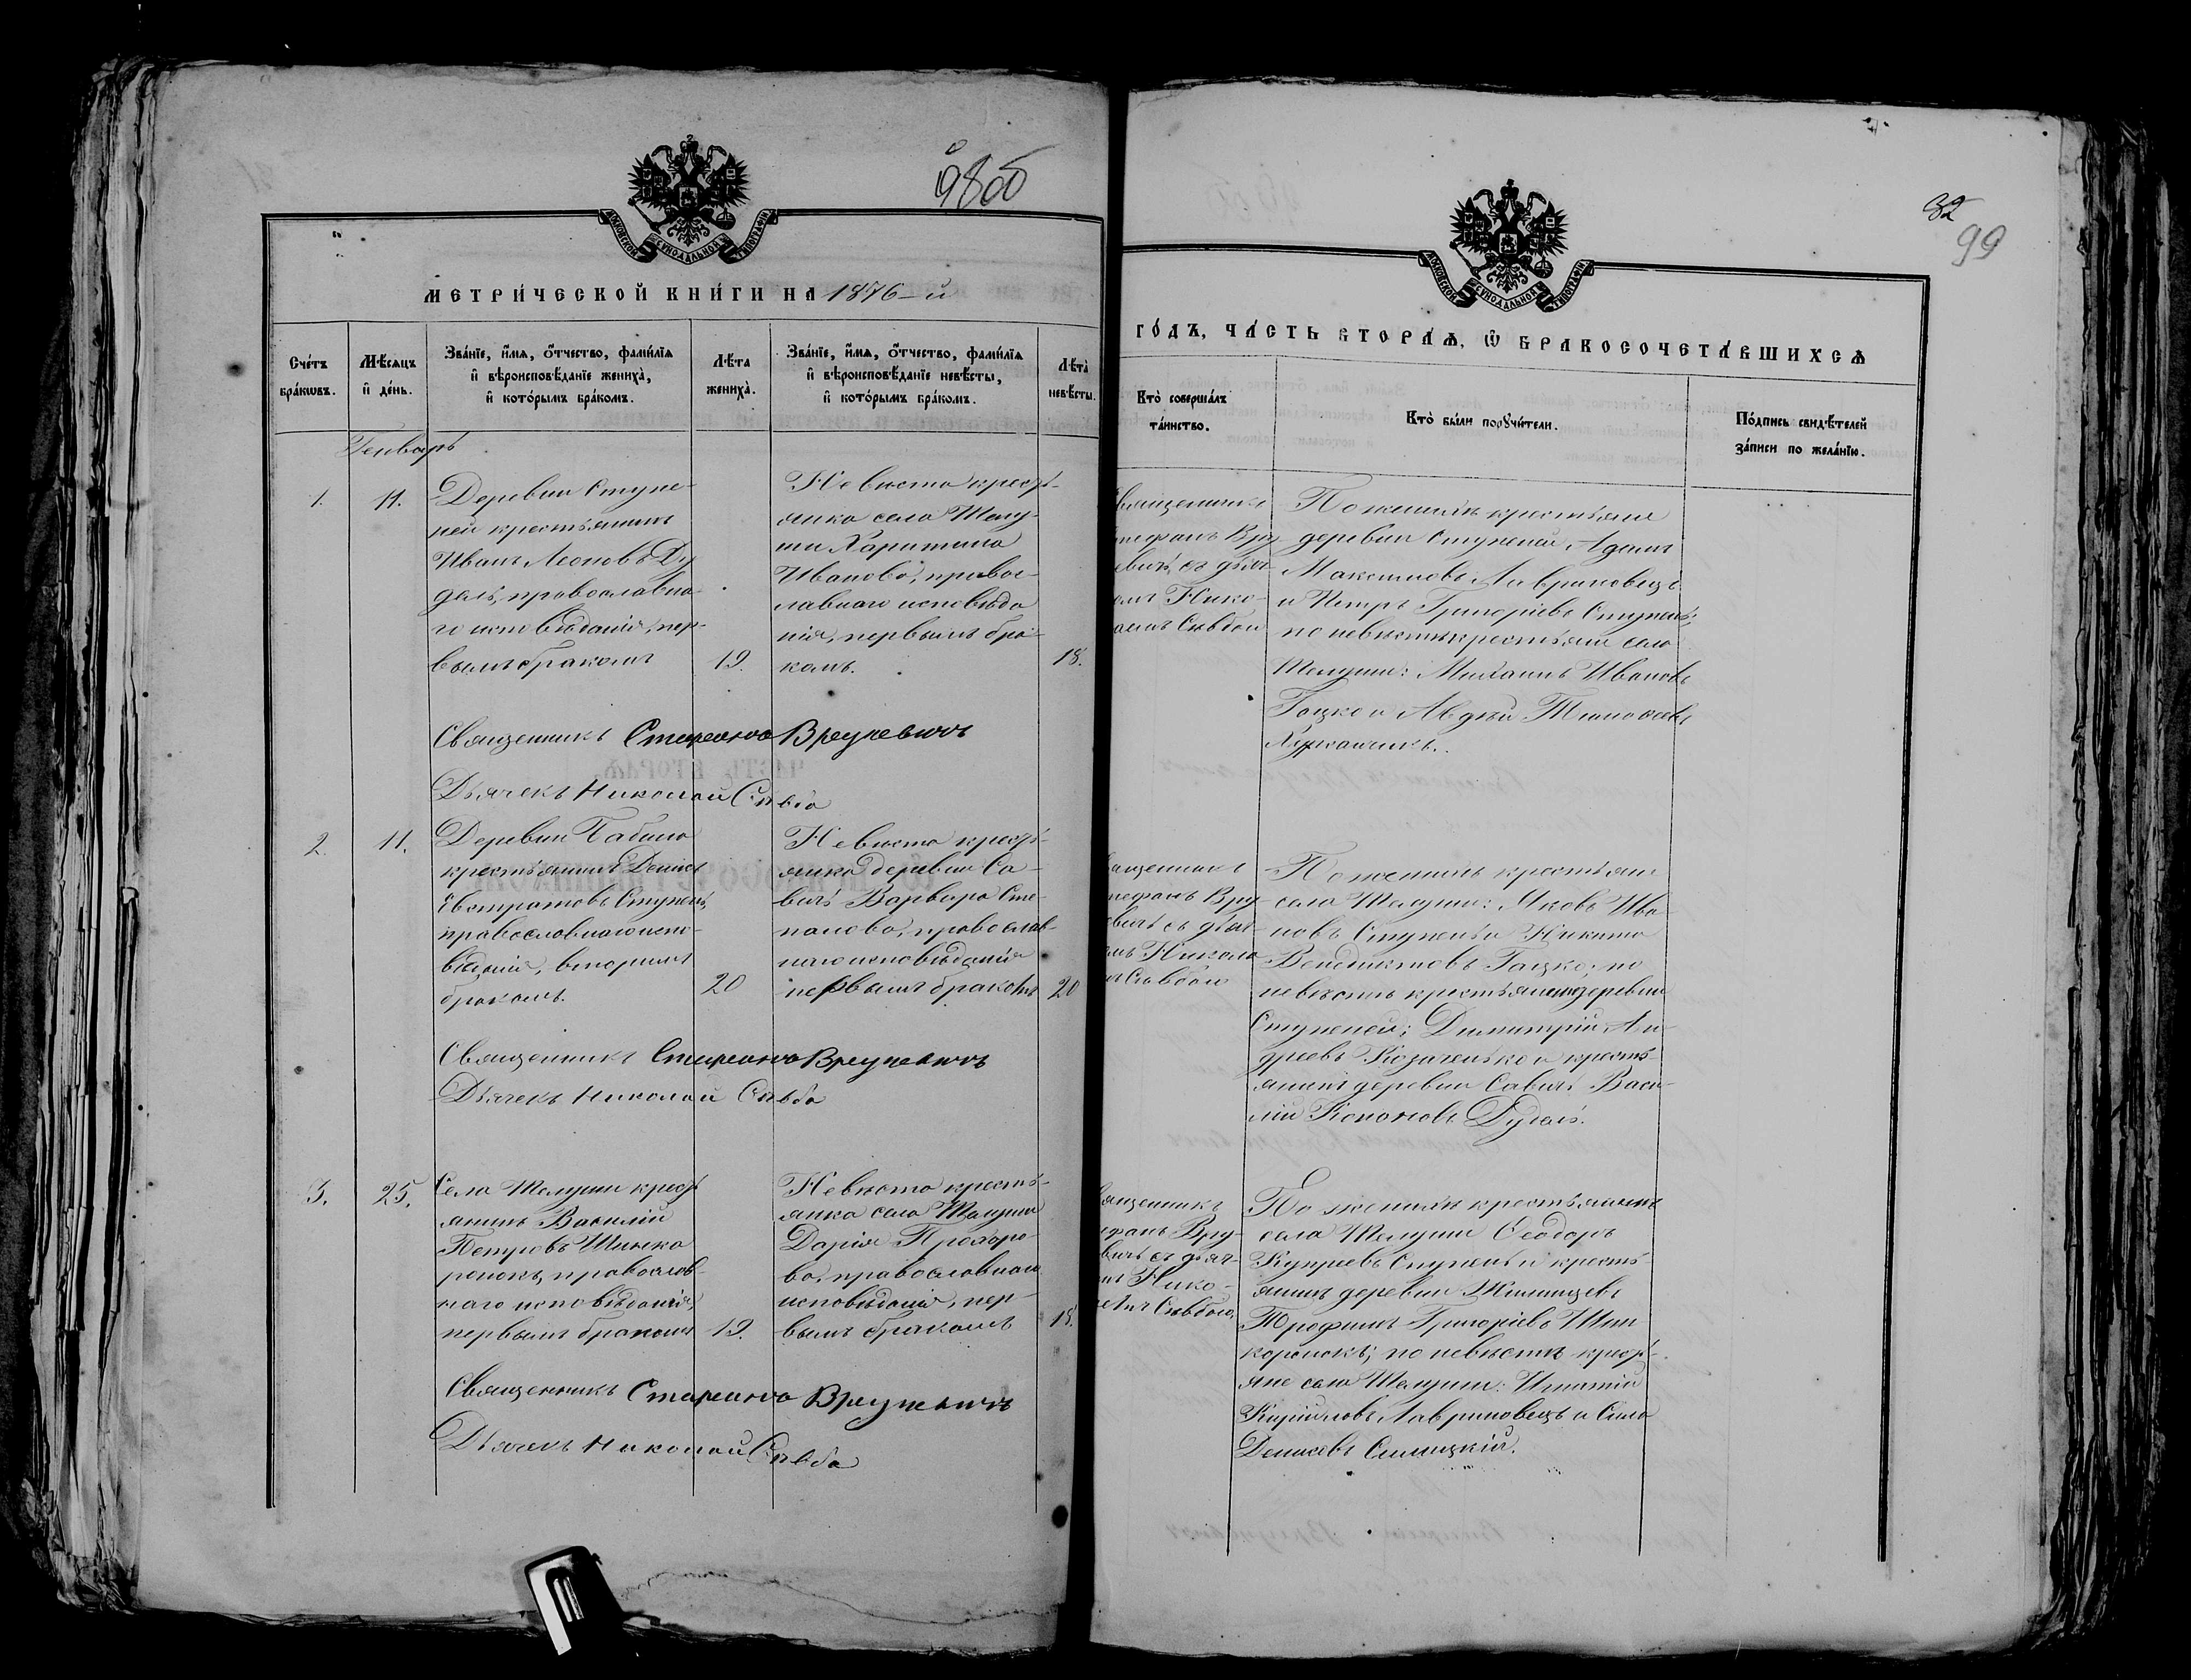 98об
МОСКОВСКОЙ СУНОДАЛЬНОЙ ТИПОГРАФІИ
МЕТРИ́ЧЕСКОЙ КНИ́ГИ НА 1876-й
Сче́тъ бра́кωвъ.
Мѣ́сѧцъ и҆ де́нь.
Зва́нїе, и҆́мѧ, ѻ҆́тчество, фами́лїѧ
и҆ вѣроисповѣ́данїе жениха̀,
и҆ кото́рымъ бра́комъ.
Лѣ́та жениха̀.
Зва́нїе, и҆́мѧ, ѻ҆́тчество, фами́лїѧ
и҆ вѣроисповѣ́данїе невѣ́сты,
и҆ кото́рымъ бра́комъ.
Лѣ́та невѣ́сты.
Генварь
1. 11.
Деревни Ступе-
ней крестьянинъ
Иванъ Леоновъ Ду
даль, православна-
го исповѣданія, пер-
вымъ бракомъ
19.
Невѣста кресть-
янка села Телу-
ши Харитина
Иванова, правос-
лавнаго исповѣда
нія, первымъ бра-
комъ.
18.
Священникъ Стефанъ Врублевичъ
Дьячекъ Николай Сѣвба
2. 11.
Деревни Бабина
крестьянинъ Денисъ
Евстратовъ Ступень,
православнаго испо-
вѣданія, вторымъ
бракомъ.
20
Невѣста кресть-
янка деревни Са-
вичъ Варвара Сте-
панова, православ-
наго исповѣданія
первымъ бракомъ
20
Священникъ Стефанъ Врублевичъ
Дьячекъ Николай Сѣвба
3. 25.
Села Телуши кресть
янинъ Василій
Петровъ Шинка
ронокъ, православ-
наго исповѣданія,
первымъ бракомъ
19.
Невѣста кресть-
янка села Телуши
Дарія Прохоро-
ва, православнаго
исповѣданія, пер-
вымъ бракомъ
18.
Священникъ Стефанъ Врублевичъ
Дьячекъ Николай Сѣвба
32
99
МОСКОВСКОЙ СУНОДАЛЬНОЙ ТИПОГРАФІИ
ГО́ДЪ, ЧА́СТЬ ВТОРА́Ѧ, Ѽ БРАКОСОЧЕТА́ВШИХСѦ
Кто̀ соверша́лъ
та́инство.
Кто̀ бы́ли порꙋчи́тели.
По́дпись свидѣ́телей
за́писи по жела́нїю.
вященникъ
тефанъ Вру
евичъ съ дьяч-
омъ Нико-
аемъ Сѣвбою
По женихѣ крестьяне
деревни Ступеней Адамъ
Максимовъ Лавриновецъ
и Петръ Григоріевъ Ступень;
по невѣстѣ крестьяне села
Телуши: Михаилъ Ивановъ
Гацко и Авдѣй Тимоѳеевъ
вященникъ
тефанъ Вру
вичъ съ дьяч-
мъ Никола
мъ Сѣвбою
По женихѣ крестьяне
села Телуши: Яковъ Ива-
новъ Ступень и Никита
Венедиктовъ Гацко; по
невѣстѣ крестьяне деревни
Ступеней; Димитрій Ан-
дреевъ Козаченько и кресть-
янинъ деревни Савичъ Васи-
лій Кононовъ Дудаль.
вященникъ
ефанъ Вру-
вичъ съ дьяч-
мъ Нико-
емъ Сѣвбою
По женихѣ крестьянинъ
села Телуши Ѳеодоръ
Купреевъ Ступень и кресть-
янинъ деревни
Трофимъ Григоріевъ Шин
каронокъ; по невѣстѣ кресть-
яне села Телуши: Игнатій
Кириловъ Лавриновецъ и Сила
Денисовъ Силицкій.